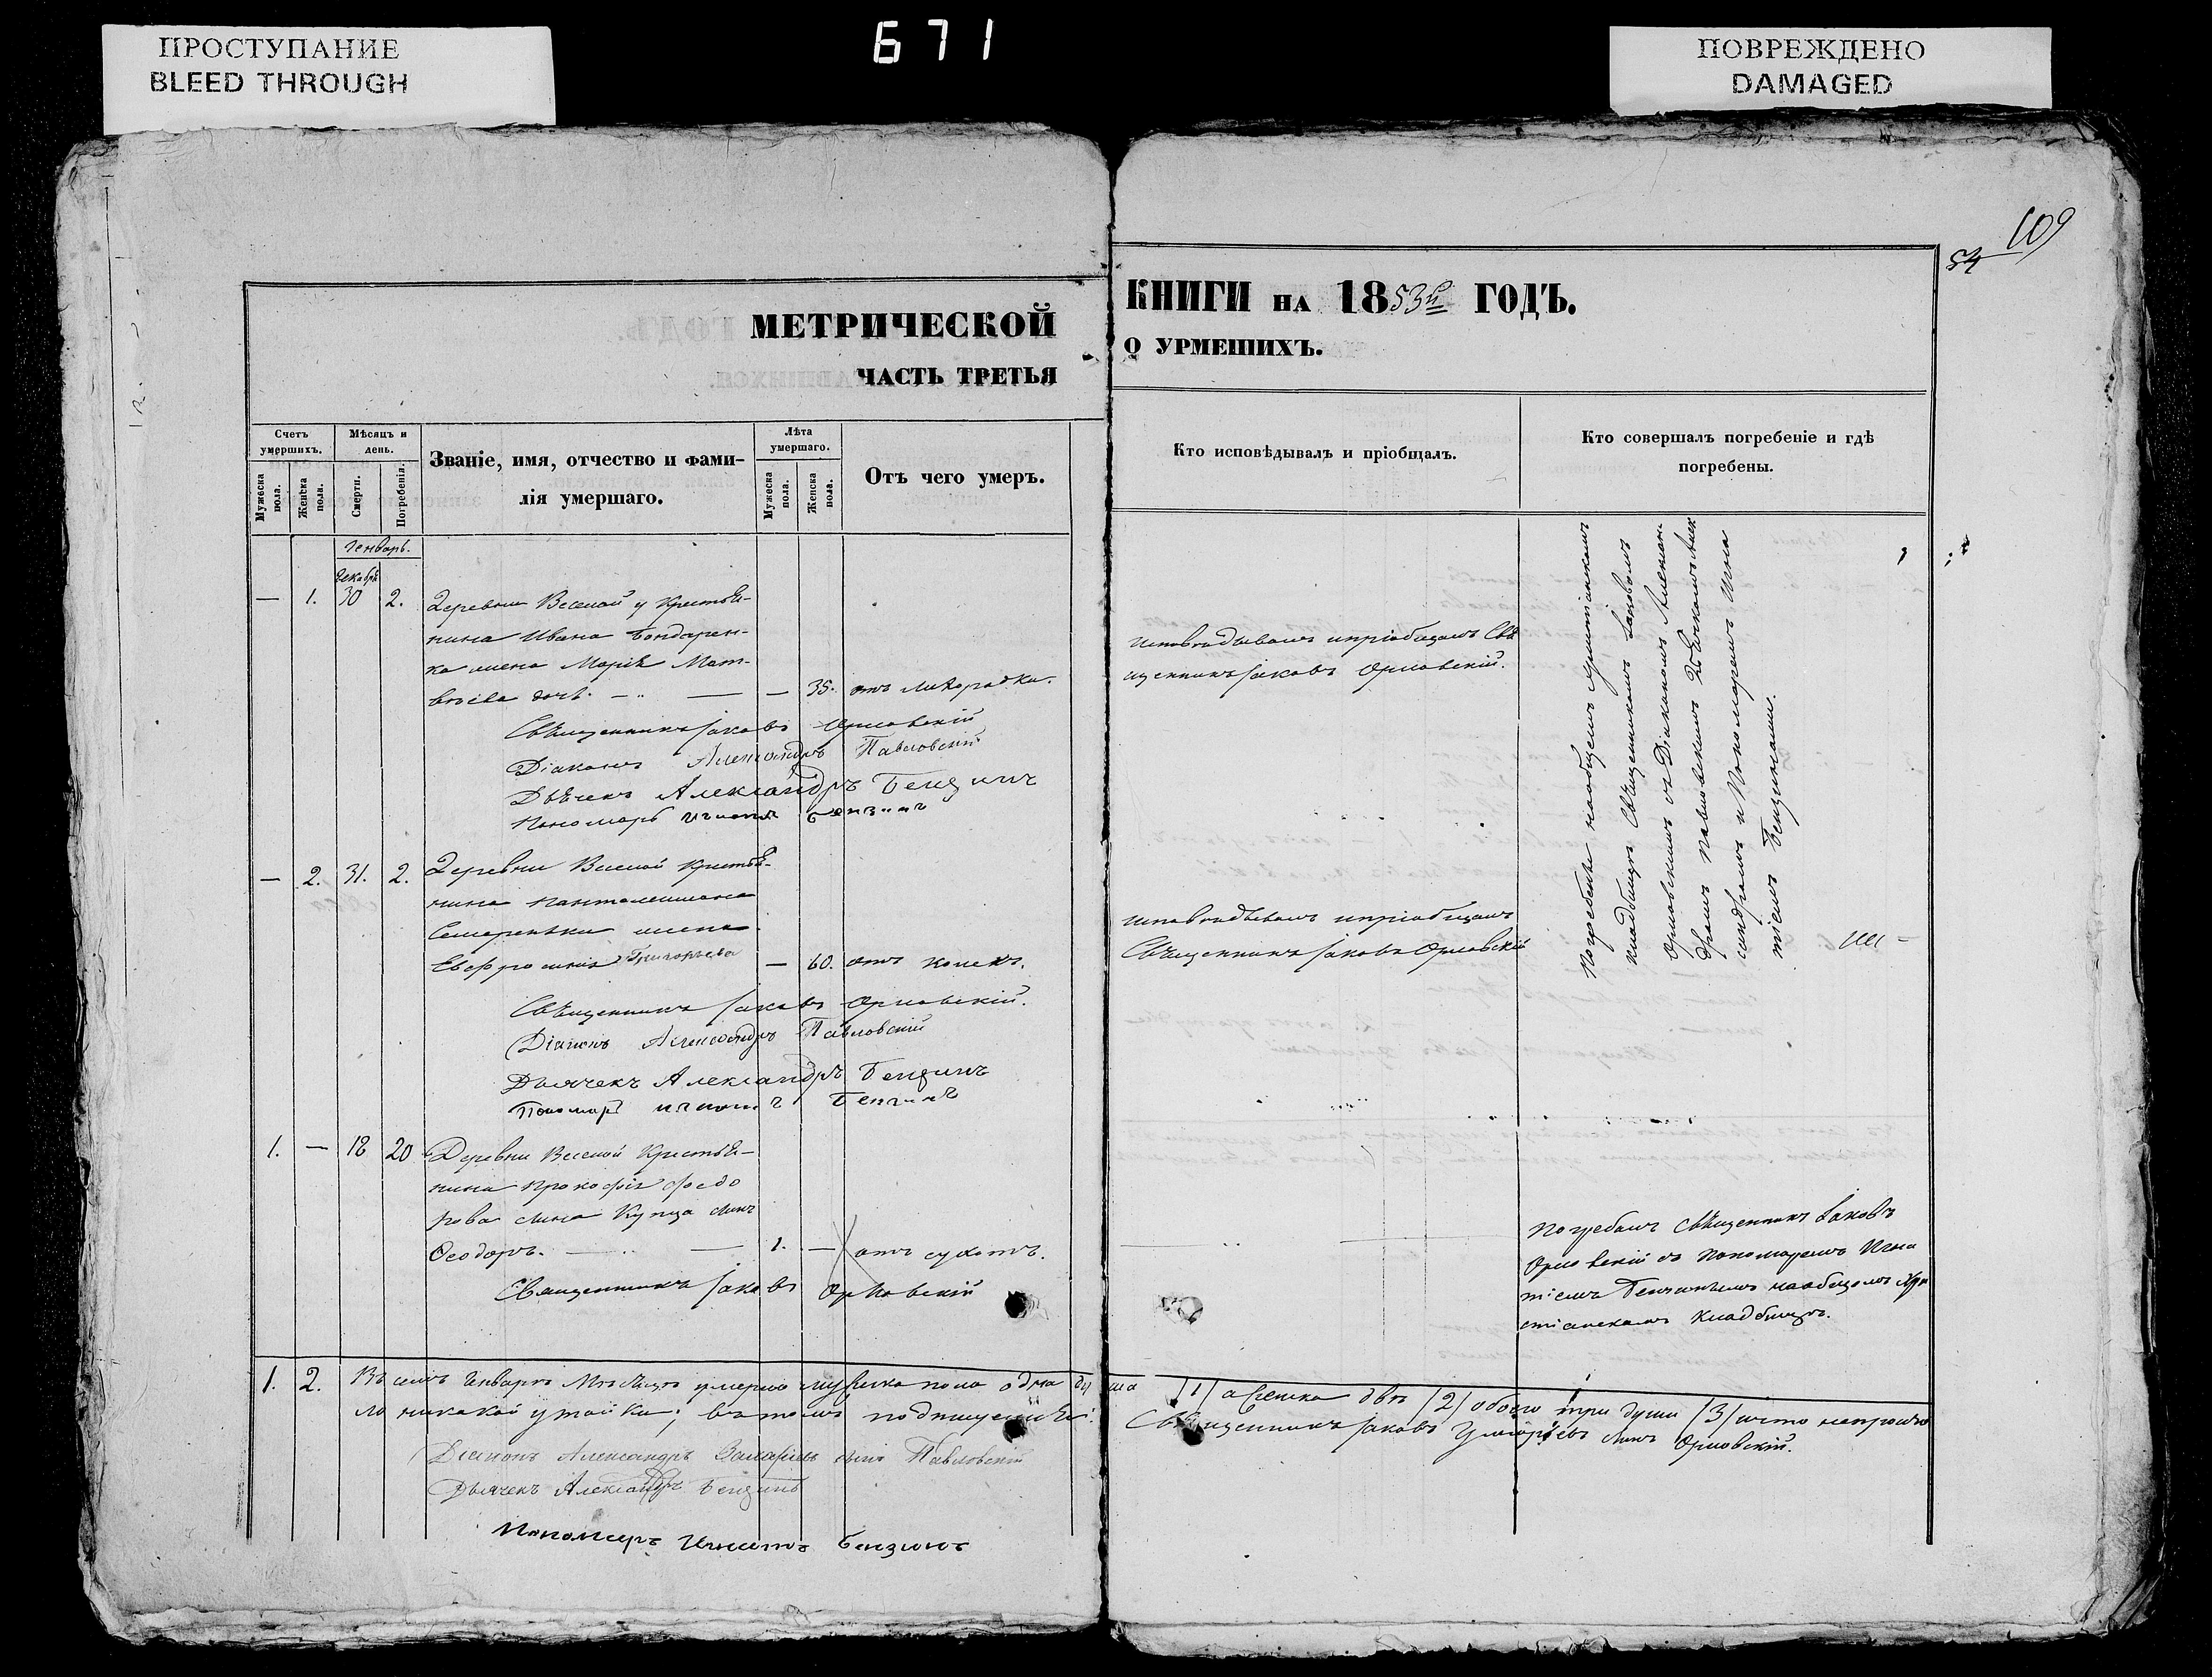 ПРОСТУПАНИЕ
BLEED THROUGH
671
ПОВРЕЖДЕНО
DAMAGED
109
54
МЕТРИЧЕСКОЙ
ЧАСТЬ ТРЕТЬЯ
КНИГИ НА 1853й ГОДЪ.
О УРМЕШИХЪ.
Счетъ умершихъ.
Мужеска пола.
Женска пола.
Мѣсяцъ и день.
Смерти.
Погребенія.
Званіе, имя, отчество и фами-
лія умершаго.
Лѣта умершаго.
Мужеска пола.
Женска пола.
Отъ чего умеръ.
Кто исповѣдывалъ и пріобщалъ.
Кто совершалъ погребеніе и гдѣ
погребены.
Генварь.
Декабрь
— 1. 30 2. Деревни Веселой у Крестья-
нина Ивана Бондарен-
ка жена Марія Мат-
вѣева дочь. — — 35. отъ лихорадки.
Священникъ Іаковъ Орловскій
Діаконъ Александръ Павловскій
Дьячекъ Александръ Бензинъ
Пономарь Игнатій Бензинъ
исповѣдывалъ и пріобщалъ Свя
щенникъ Іаковъ Орловскій.
Погребены на общемъ христіанскомъ
кладбищѣ Священникомъ Іаковомъ
Орловскимъ съ Діакономъ Алексан
дромъ Павловскимъ Дьячкомъ Алек
сандромъ и Пономаремъ Игна
тіемъ Бензинами.
— 2. 31. 2. Деревни Веселой Крестья-
нина Пантелеимона
Семеренька жена
Евфросинія Григорьева — 60. отъ колекъ.
Священникъ Іаковъ Орловскій.
Діаконъ Александръ Павловскій
Дьячекъ Александръ Бензинъ
Пономарь Игнатій Бензинъ
исповѣдывалъ и пріобщалъ
Священникъ Іаковъ Орловскій
1. — 18 20 Деревни Веселой Крестья-
нина Прокофія Федо
рова сина Купца синъ
Ѳеодоръ. — — 1. — отъ сухотъ.
Священникъ Іаковъ Орловскій
Погребалъ Священникъ Іаковъ
Орловскій съ Пономаремъ Игна
тіемъ Бензинымъ на общомъ Хри
стіанскомъ Кладбищѣ.
1. 2. Въ семъ Генварѣ Мѣсяцѣ умерло мужеска пола одна ду ша /1/ а женска двѣ /2/ обоего три души /3/ и что непрошло
ло никакой утайки; въ томъ подпищемся.
Священникъ Іаковъ Григорьевъ синъ Орловскій.
Діаконъ Александръ Захаріевъ сынъ Павловскій
Дьячекъ Александръ Бензинъ
Пономарь Игнатій Бензинъ